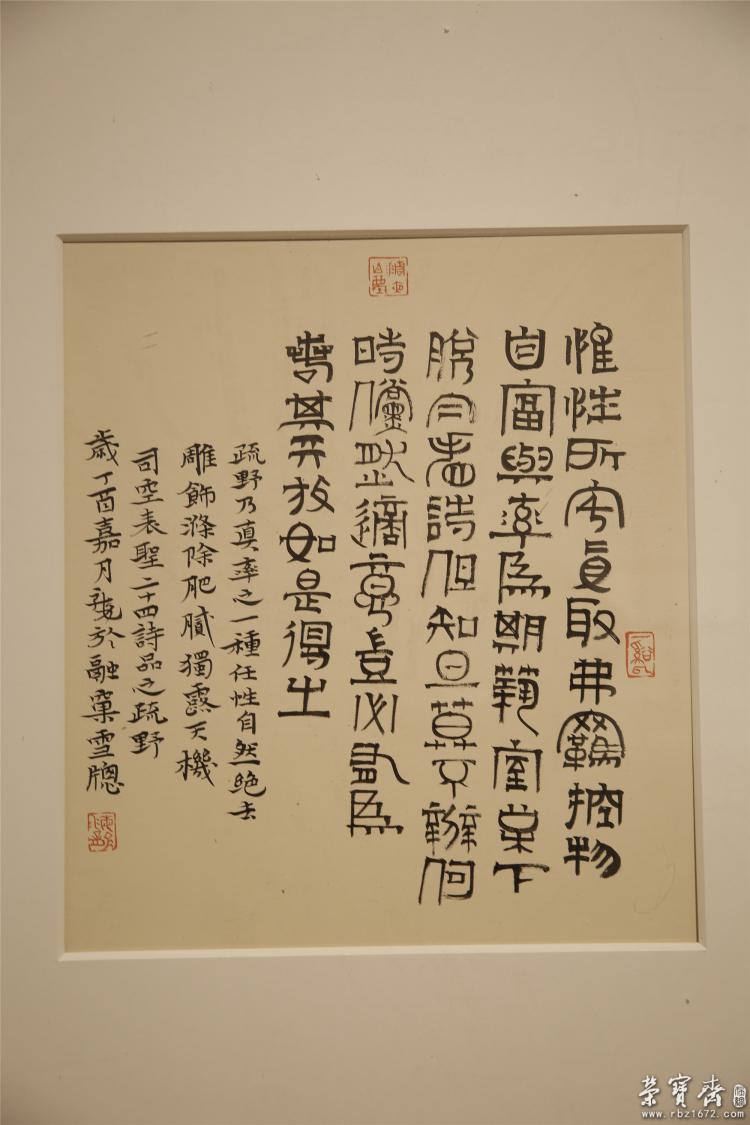 惟性所宅真取弗羈控物
自富與率為期築室松下
脫帽看詩但知旦暮不辨何
時儻然適意豈必有為
若其天放如是得之
疏野乃真率之一種任性自然絕去
雕飾滌除肥膩獨露天機
司空表聖二十四詩品之疏野
歲丁酉嘉月於融窠雪牕
榮寶齋
www.rbz1672.com